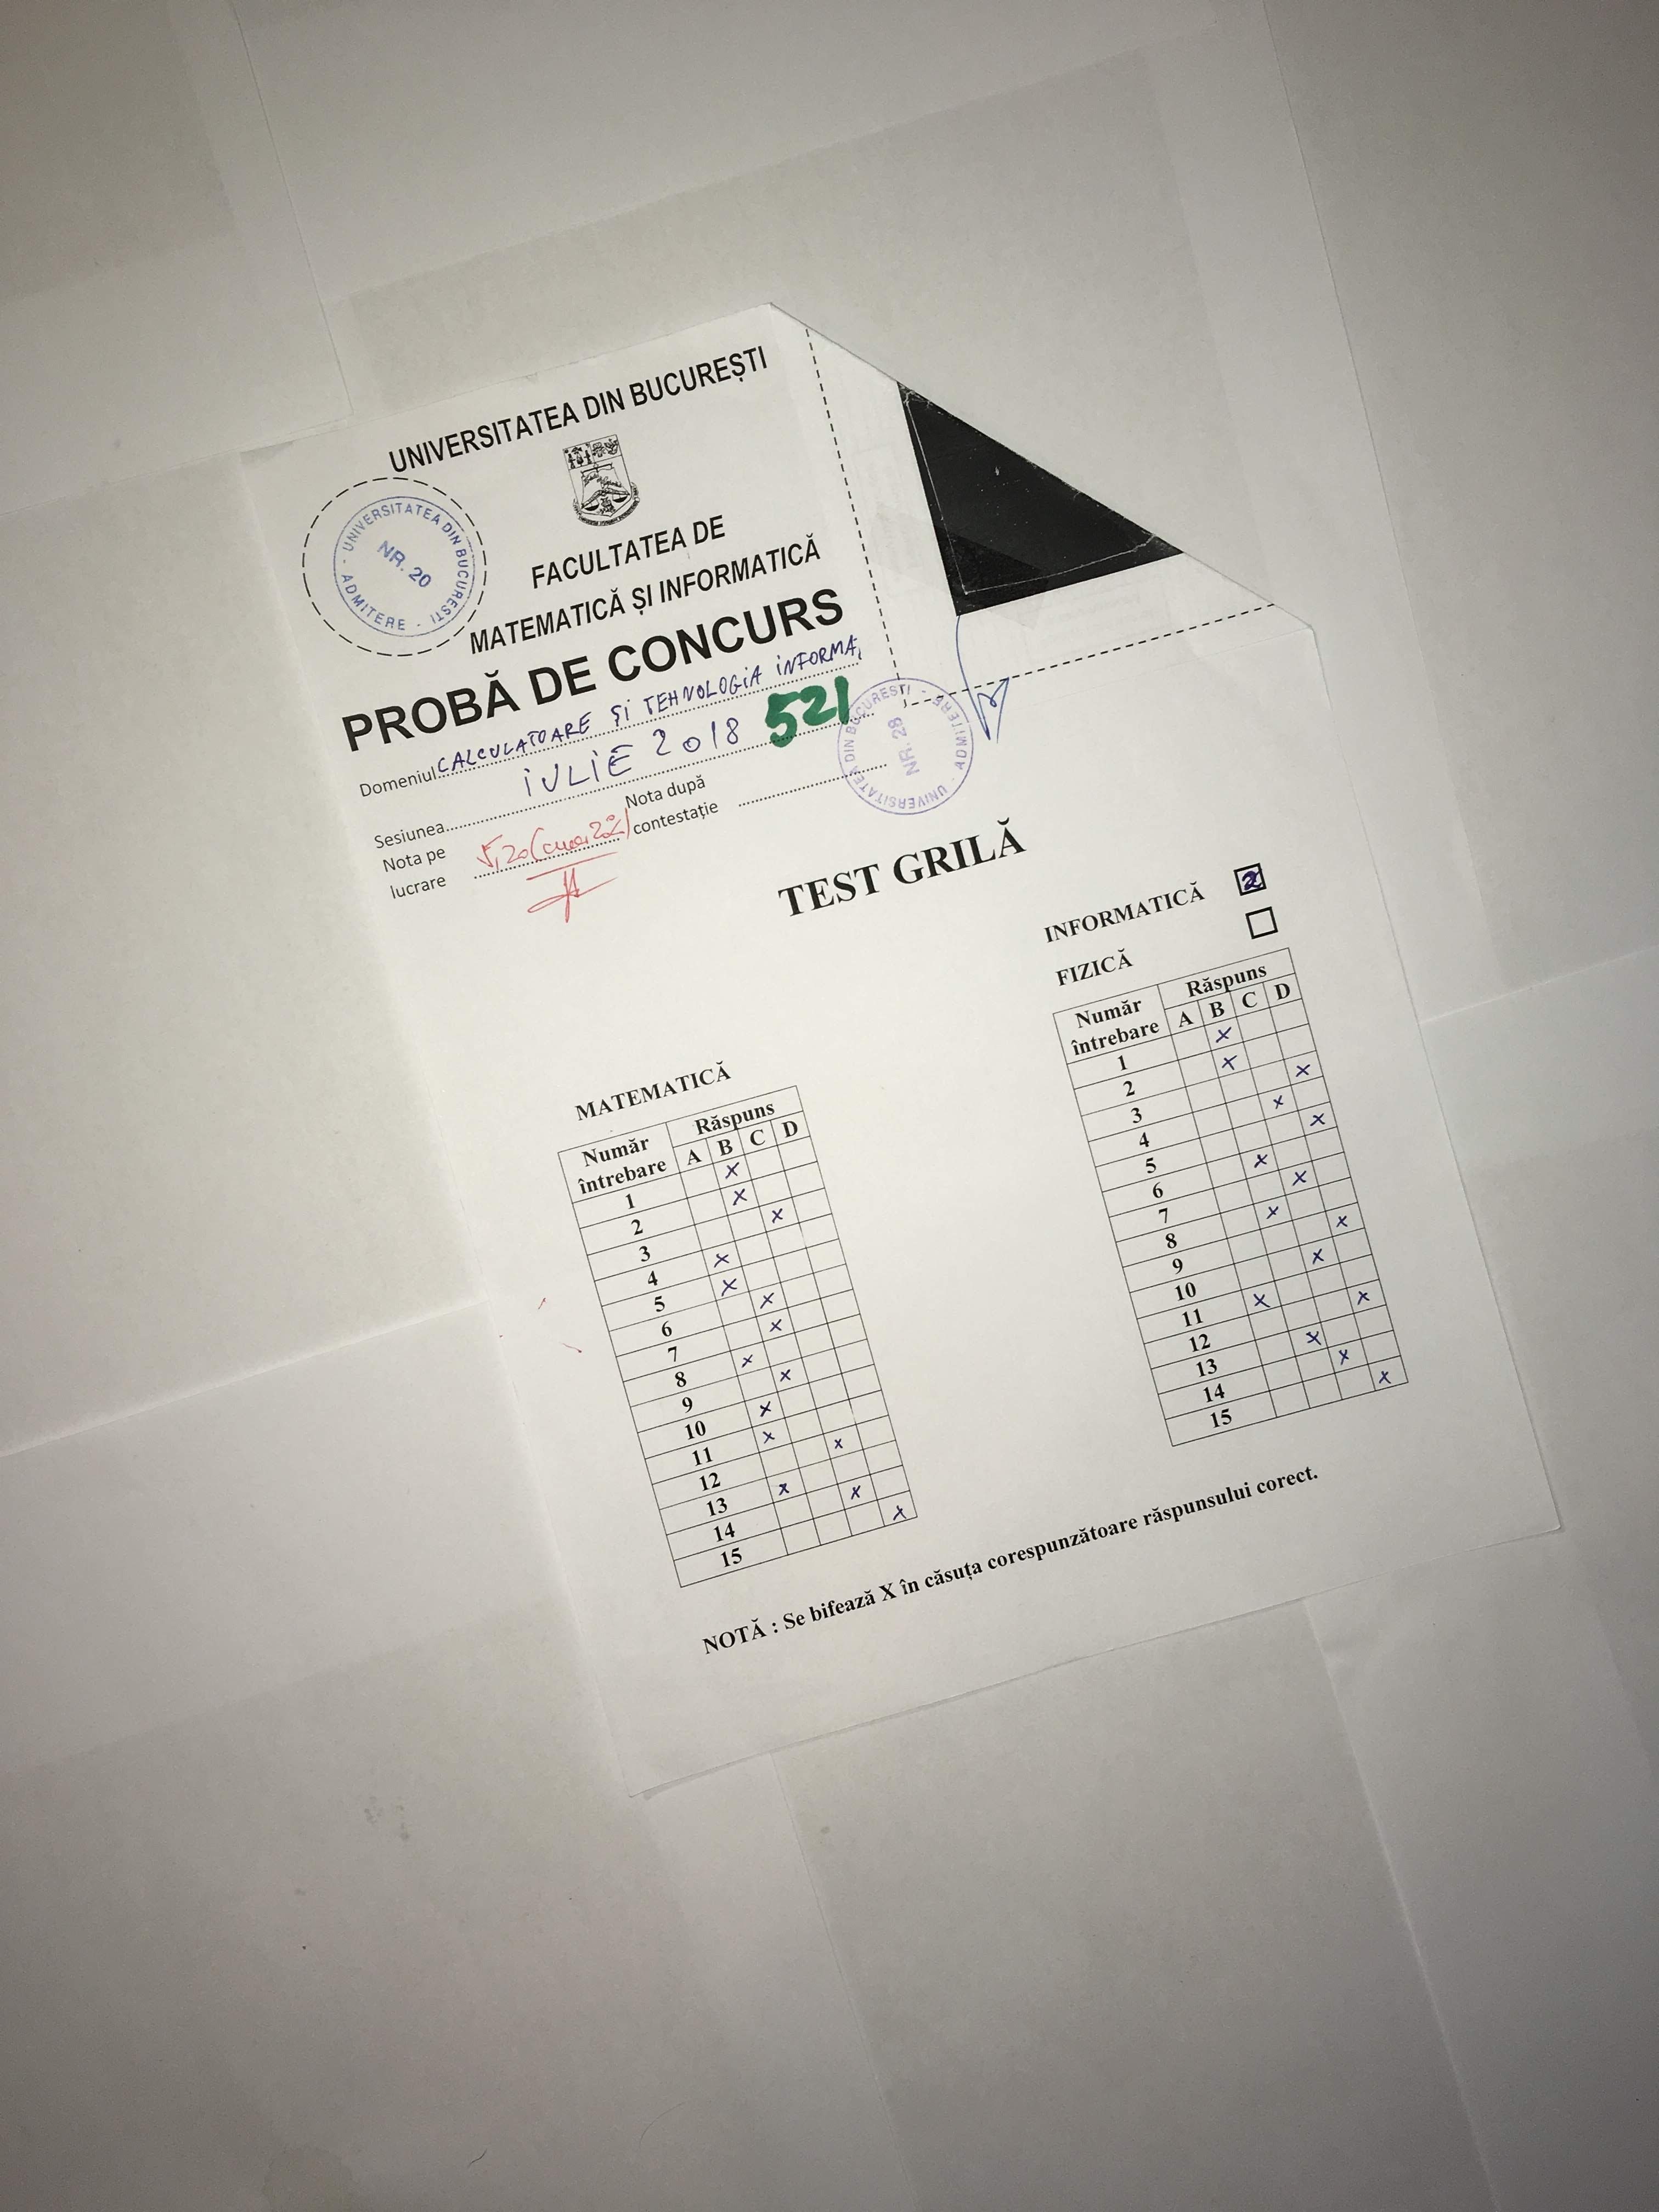 UNIVERSITATEA DIN BUCUREȘTI
UNIVERSITATEA DIN BUCUREȘTI - ADMITERE -
NR. 20
FACULTATEA DE
MATEMATICĂ ȘI INFORMATICĂ
PROBĂ DE CONCURS
Domeniul CALCULATOARE ȘI TEHNOLOGIA INFORMA.
Sesiunea IULIE 2018 521
Nota pe lucrare 5,20
Nota după contestație
UNIVERSITATEA DIN BUCUREȘTI - ADMITERE -
NR. 28
TEST GRILĂ
INFORMATICĂ
FIZICĂ
MATEMATICĂ
Număr întrebare Răspuns
A B C D
1 x
2 x
3 x
4 x
5 x
6 x
7 x
8 x
9 x
10 x
11 x
12 x
13 x
14 x
15 x
Număr întrebare Răspuns
A B C D
1 x
2 x
3 x
4 x
5 x
6 x
7 x
8 x
9 x
10 x
11 x
12 x
13 x
14 x
15 x
NOTĂ : Se bifează X în căsuța corespunzătoare răspunsului corect.